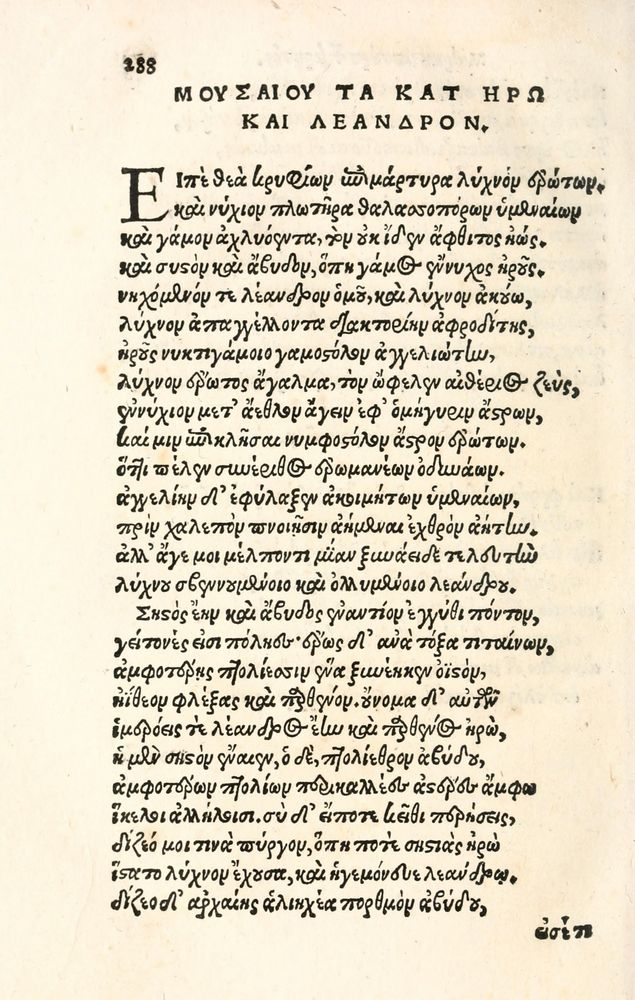 288
ΜΟΥΣΑΙΟΥ ΤΑ ΚΑΤ ΗΡΩ
ΚΑΙ ΛΕΑΝΔΡΟΝ.
ΕΙπὲ θεὰ κρυφίων ἐπιμάρτυρα λύχνον ἐρώτων,
καὶ νύχιον πλωτῆρα θαλασσοπόρων ὑμεναίων
καὶ γάμον ἀχλυόεντα, τὸν οὐκ ἴδεν ἄφθιτος ἠώς.
καὶ σηστὸν καὶ ἄβυδον, ὅπη γάμος ἔννυχος ἡροῦς.
νηχόμενόν τε λέανδρον ὁμοῦ, καὶ λύχνον ἀκούω,
λύχνον ἀπαγγέλλοντα διακτορίην ἀφροδίτης,
ἡροῦς νυκτιγάμοιο γαμοστόλον ἀγγελιώτην,
λύχνον ἔρωτος ἄγαλμα, τὸν ὤφελεν αἰθέριος ζεὺς,
ἐννύχιον μετ' ἄεθλον ἄγειν ἐφ' ὁμήγυριν ἄστρων,
καί μιν ἐπικλῆσαι νυμφοστόλον ἄστρον ἐρώτων.
ὅττι πέλεν συνέριθος ἐρωμανέων ὀδυνάων.
ἀγγελίην δ' ἐφύλαξεν ἀκοιμήτων ὑμεναίων,
πρὶν χαλεπὸν πνοιῇσιν ἀήμεναι ἐχθρὸν ἀήτην.
ἀλλ' ἄγε μοι μέλποντι μίαν ξυνάειδε τελευτὴν
λύχνου σβεννυμένοιο καὶ ὀλλυμένοιο λεάνδρου.
Σηστὸς ἔην καὶ ἄβυδος ἐναντίον ἐγγύθι πόντου,
γείτονές εἰσι πόληες· ἔρως δ' ἀνὰ τόξα τιταίνων,
ἀμφοτέρῃς πτολίεσσιν ἕνα ξυνέηκεν ὀϊστὸν,
ἠΐθεον φλέξας καὶ παρθένον. οὔνομα δ' αὐτῶν
ἱμερόεις τε λέανδρος ἔην καὶ παρθένος ἡρὼ,
ἡ μὲν σηστὸν ἔναιεν, ὁ δὲ, πτολίεθρον ἀβύδου,
ἀμφοτέρων πτολίων περικαλλέες ἀστέρες ἄμφω
ἴκελοι ἀλλήλοισι. σὺ δ' εἴποτε κεῖθι περήσεις,
δίζεό μοι τινὰ πύργον, ὅπη ποτὲ σηστιὰς ἡρὼ
ἵστατο λύχνον ἔχουσα, καὶ ἡγεμόνευε λεάνδρῳ.
δίζεο δ' ἀρχαίης ἁλιηχέα πορθμὸν ἀβύδου,
εἰσέτι